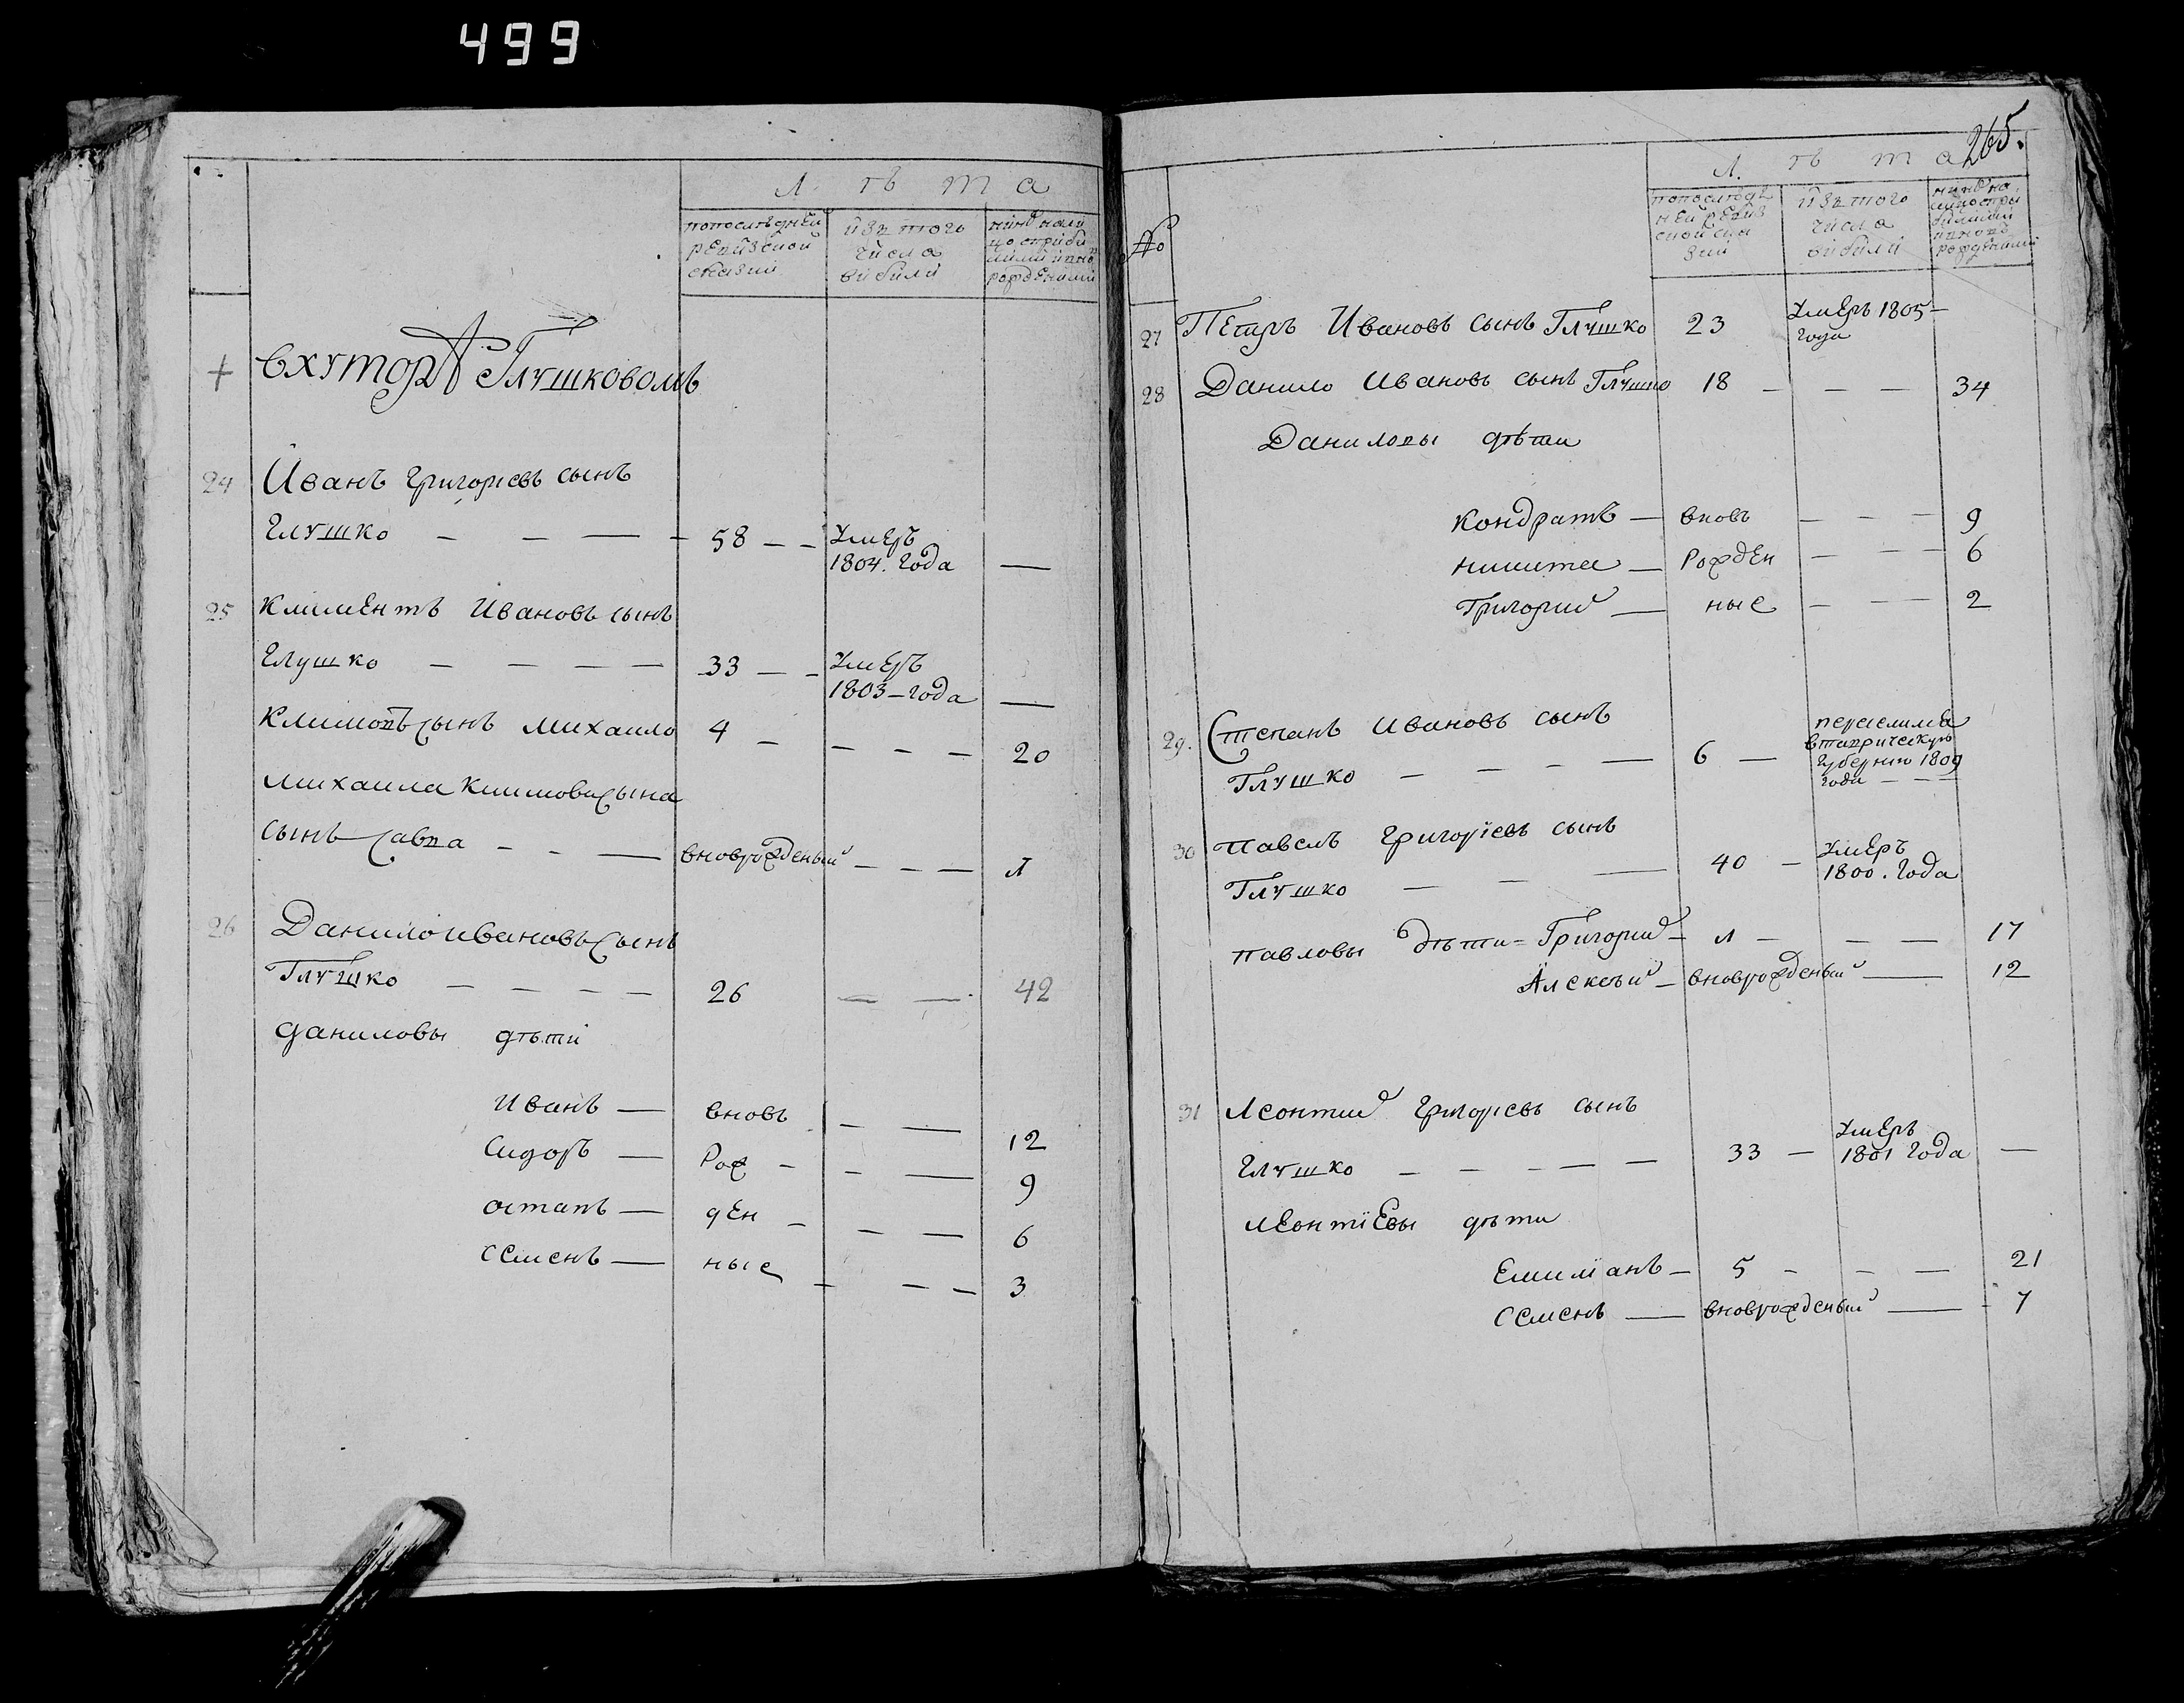 499
Л ѣ т а
попослѣдней ревизской сказии
изъ того числа выбыли
нинѣ нали цо сприбилими ивно рожденими
+ вхуторѣ Глушковомъ
24 Иванъ григориевъ сынъ
глушко — — — 58 — — Умеръ
1804. года —
25 климентъ Ивановъ сынъ
глушко — — — — 33 — — Умеръ
1803 — года —
климовъ сынъ михаило 4 — — — — 20
михаила климова сына
сынъ савва — — — вноврожденый — — — 1
26 Данило ивановъ сынъ
Глушко — — — — 26 — — 42
даниловы дѣти
иванъ — вновь — — 12
сидоръ — рож — — — 9
остапъ — ден — — — 6
семенъ — ные — — — 3
265.
Л ѣ т а
№
попослѣд ней ревиз ской ска зии
изъ того числа выбыли
27 Петръ Ивановъ сынъ Глушко 23 Умеръ 1805 —
года
28 Данило ивановъ сынъ Глушко 18 — — — 34
Даниловы дѣти
кондратъ — вновь — — — 9
никита — рожден — — — 6
григорий — ные — — 2
29. Степанъ ивановъ сынъ
Глушко — — — — 6 — переселился
втаврическую
губернию 1809
года — — —
30 павелъ григориевъ сынъ
Глушко — — — 40 — Умеръ
1800. года
павловы дѣти = Григорий — 1 — — — 17
Алексѣй — вноврожденый — 12
31 леонтий григориевъ сынъ
глушко — — — — — 33 — Умеръ
1801 года —
леонтиевы дѣти
емилианъ — 5 — — — 21
семенъ — вноврожденый — — 7